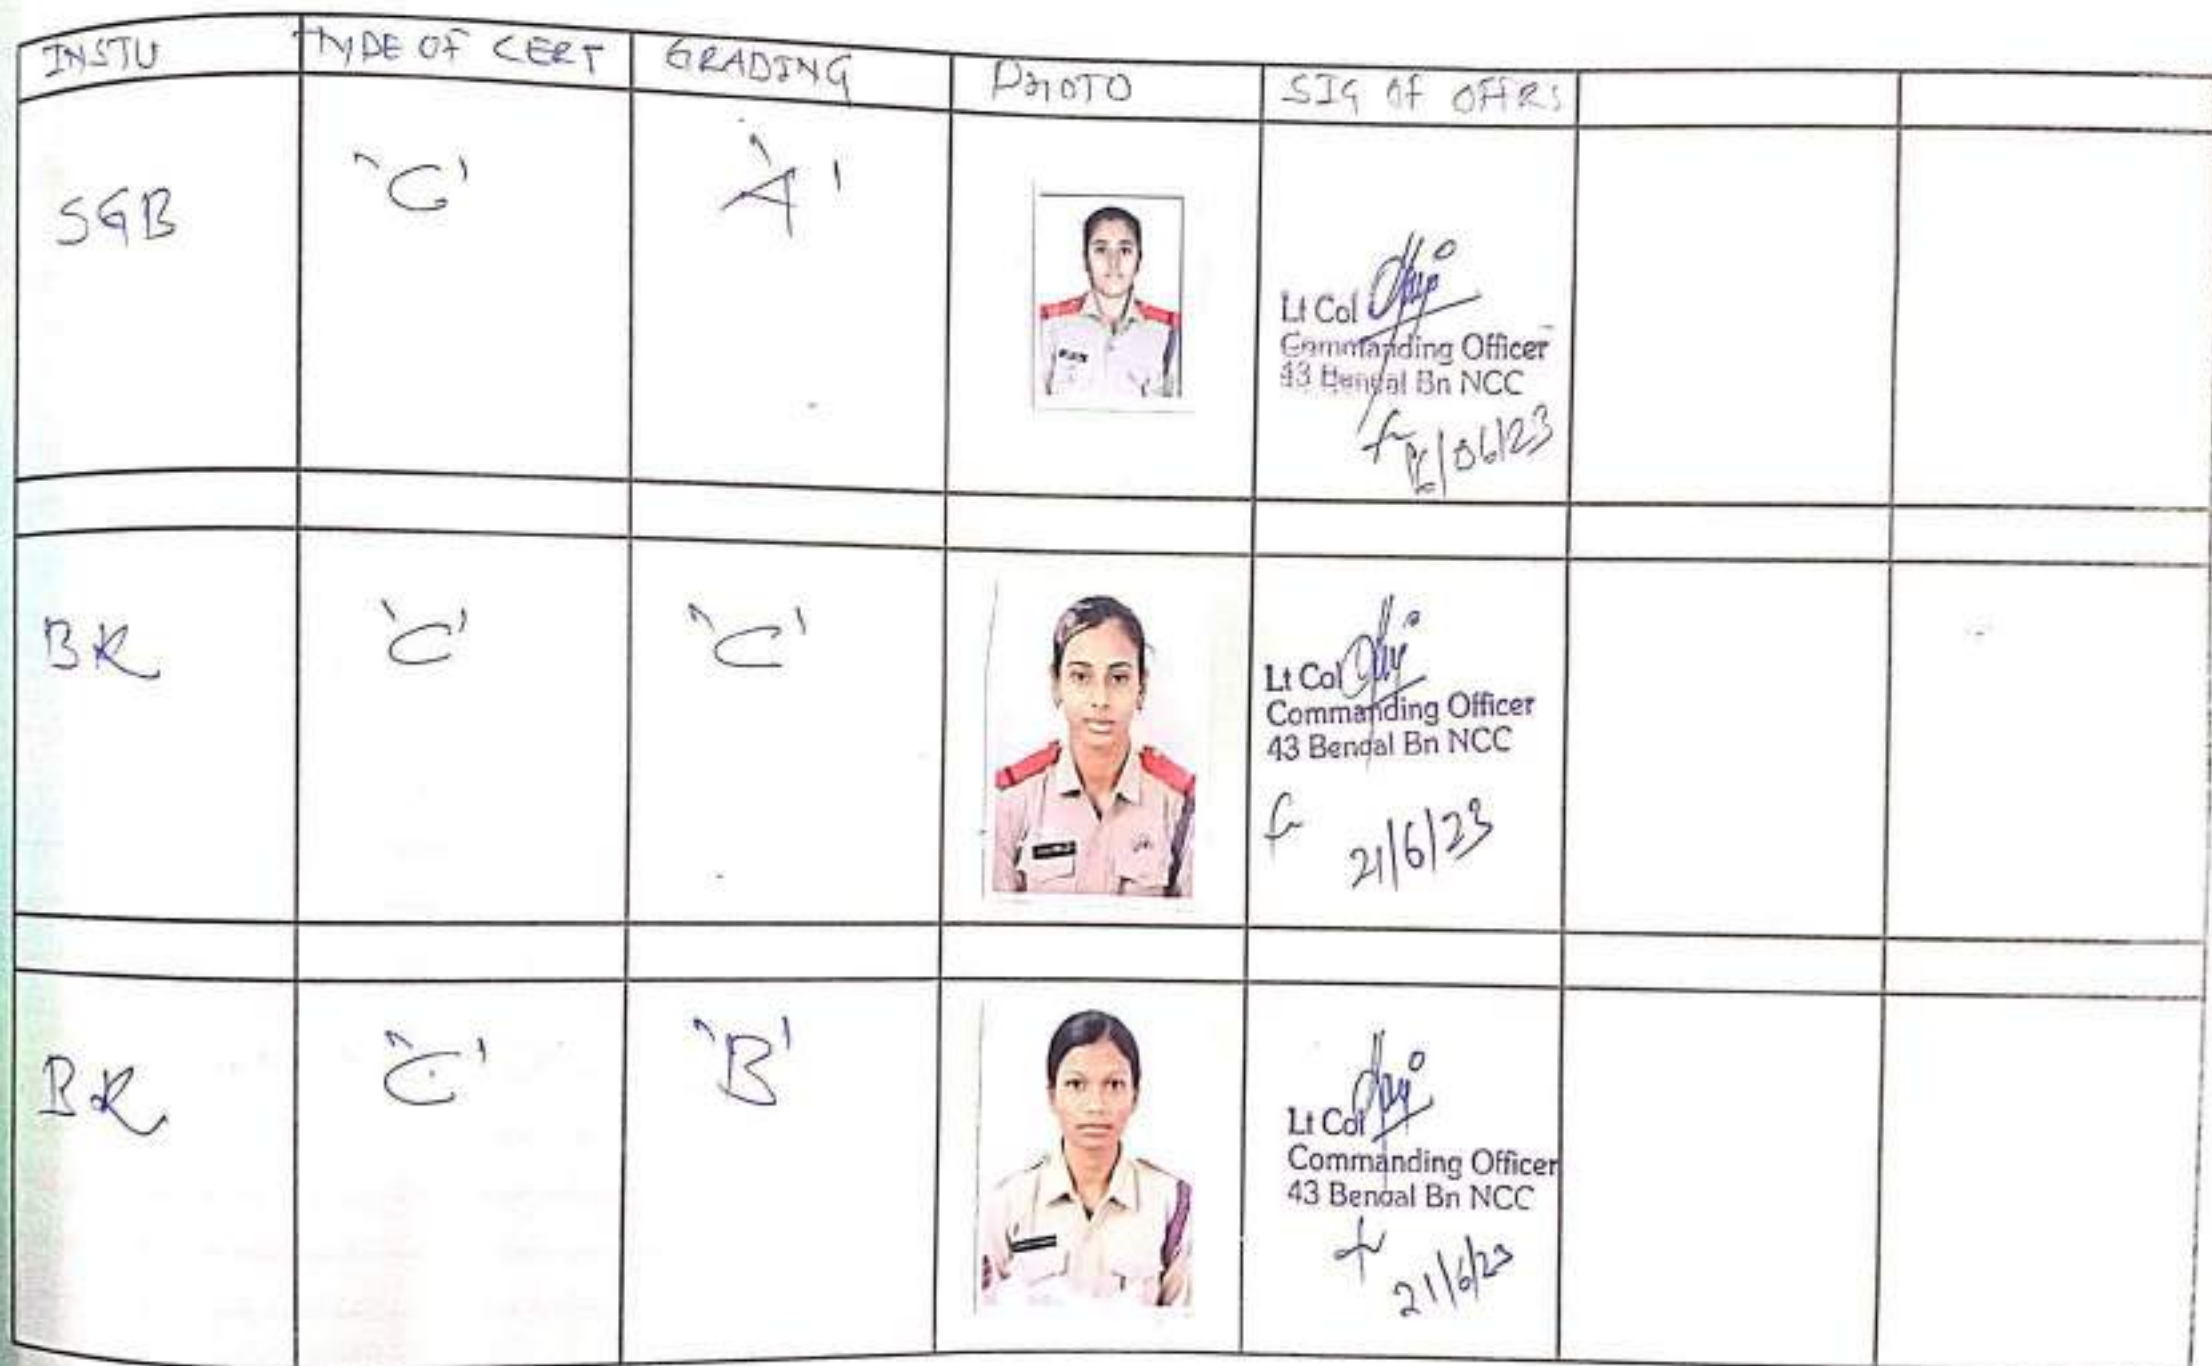 INSTU TYPE OF CERT GRADING PHOTO SIG OF OFFRS
SGB 'C' 'A'
Lt Col
Commanding Officer
43 Bengal Bn NCC
/06/23
BK 'C' 'C'
Lt Col
Commanding Officer
43 Bengal Bn NCC
21/6/23
BK 'C' 'B'
Lt Col
Commanding Officer
43 Bengal Bn NCC
21/6/23